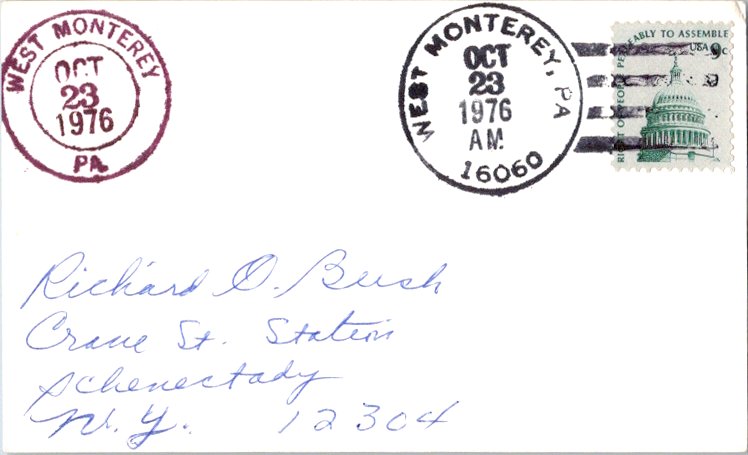 WEST MONTEREY
OCT
23
1976
PA
WEST MONTEREY, PA
OCT
23
1976
AM
16060
RIGHT OF PEOPLE PEACEABLY TO ASSEMBLE
USA 9c
Richard O. Bush
Crane St. Station
Schenectady
N.Y. 12304